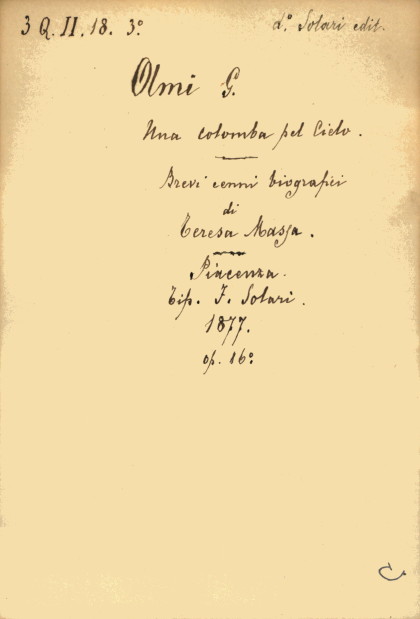 3 Q. II. 18. 3º
dº. Solari edit.
Olmi G.
Una colomba pel Cielo.
Brevi cenni biografici
di
Teresa Massa.
Piacenza.
Tip. F. Solari.
1877.
op. 16º